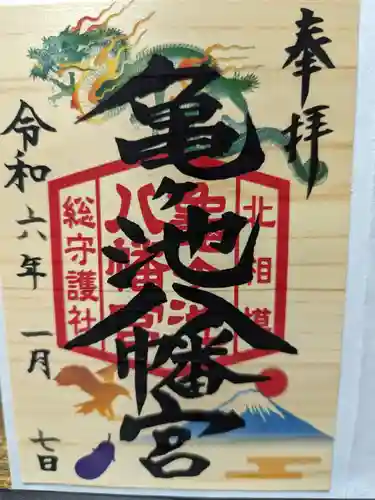 奉拝
亀ヶ池八幡宮
令和六年 一月 七日
北相模
亀ヶ池
八幡宮
総守護社